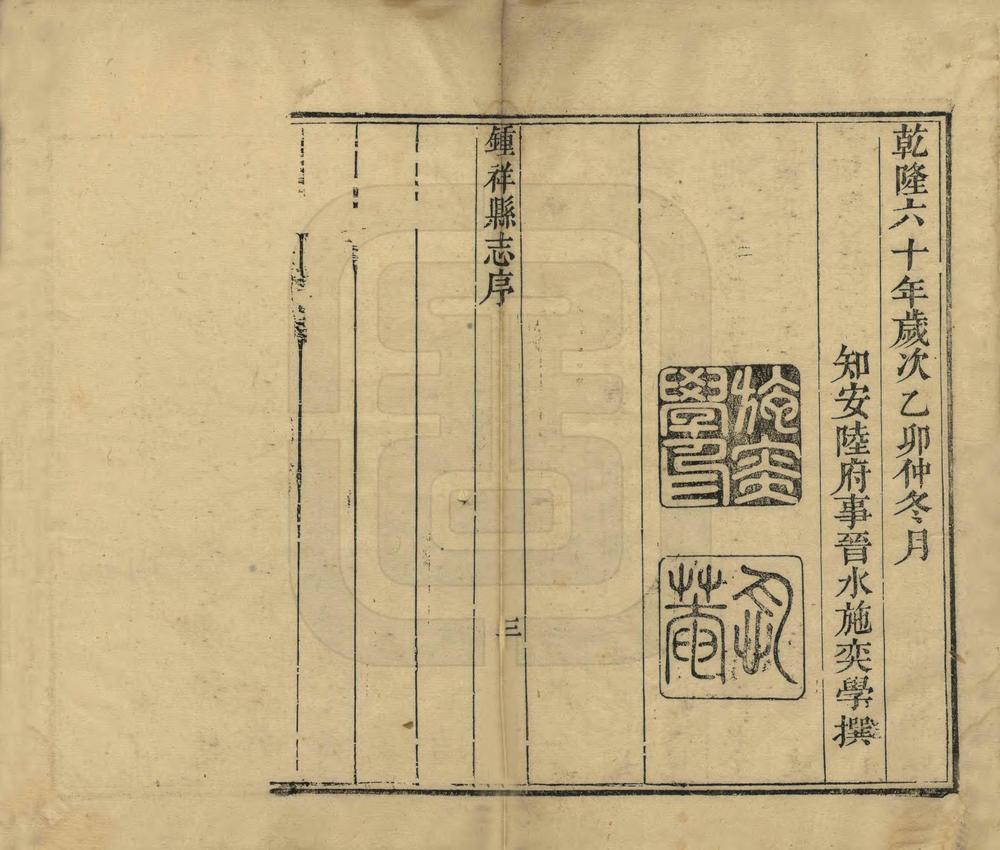 乾隆六十年歲次乙卯仲冬月
知安陸府事晉水施奕學撰
施奕學印
鍾祥縣志序
三